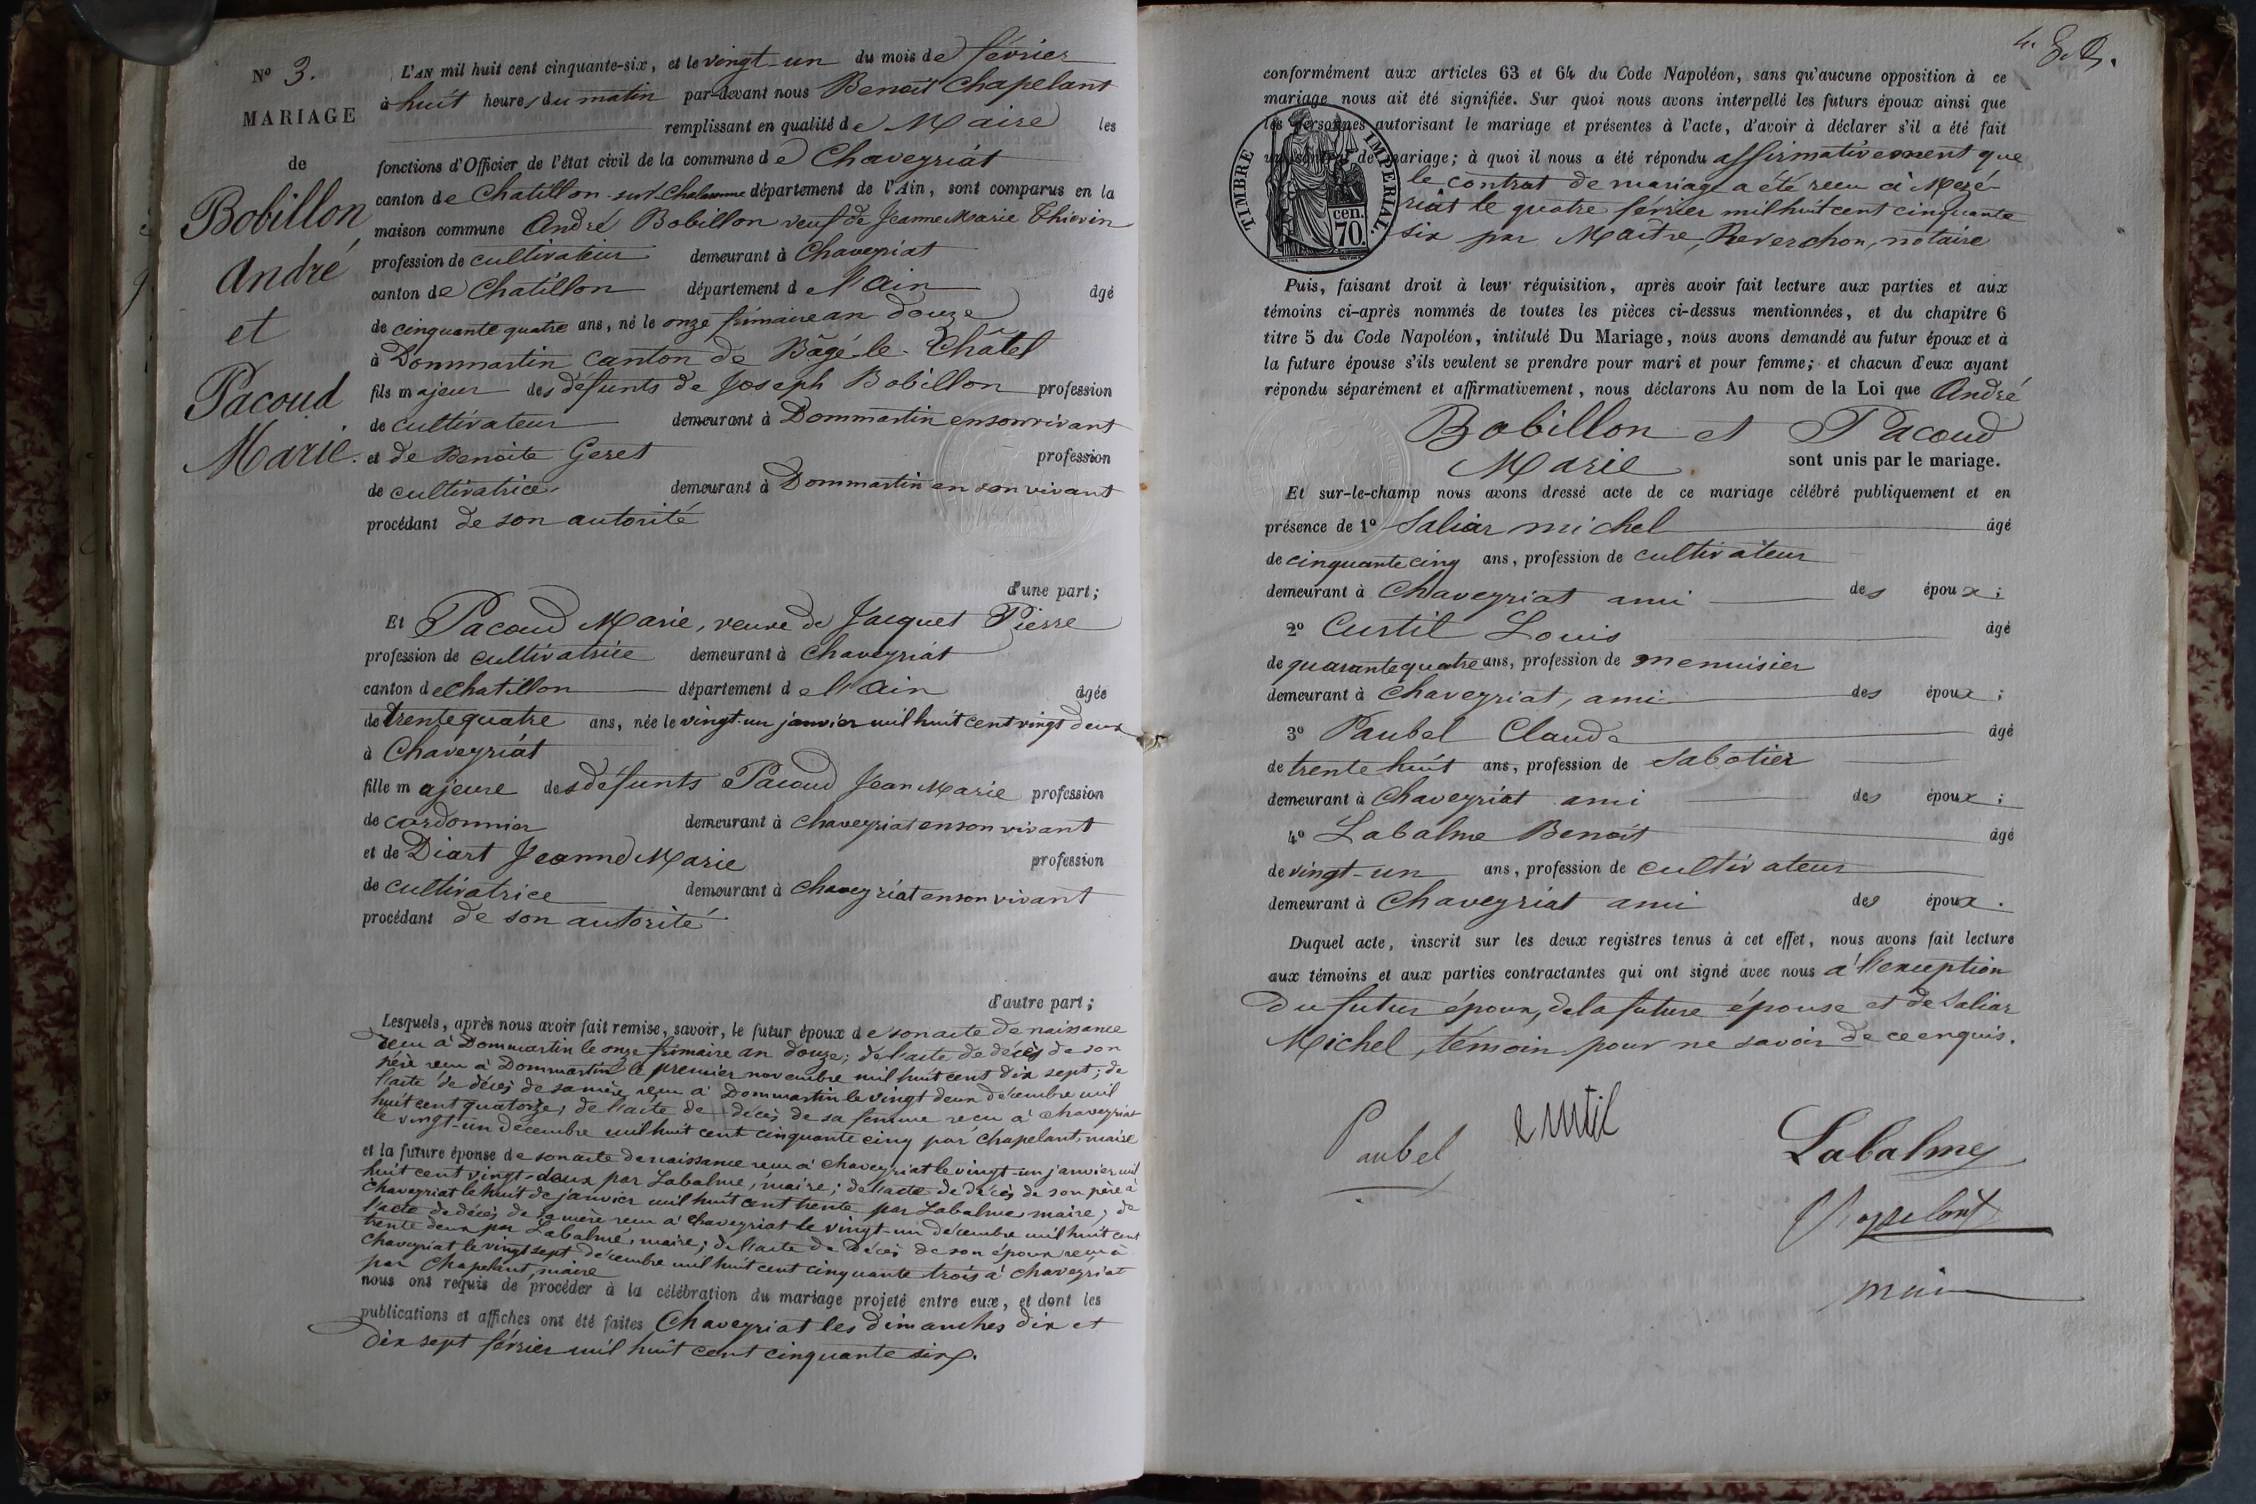 N° 3.
MARIAGE
de
Bobillon
André
et
Pacoud
Marie.
L'AN mil huit cent cinquante-six, et le vingt-un du mois de février
à huit heures du matin par-devant nous Benoit Chapelant
remplissant en qualité de Maire les
fonctions d'Officier de l'état civil de la commune de Chaveyriat
canton de Chatillon-sur-Chalaronne département de l'Ain, sont comparus en la
maison commune André Bobillon veuf de Jeanne Marie Thievin
profession de cultivateur demeurant à Chaveyriat
canton de Chatillon département de l'Ain âgé
de cinquante quatre ans, né le onze frimaire an douze
à Dommartin canton de Bâgé-le-Châtel
fils majeur des défunts de Joseph Bobillon profession
de cultivateur demeurant à Dommartin en son vivant
et de Benoite Geret profession
de cultivatrice demeurant à Dommartin en son vivant
procédant de son autorité
d'une part;
Et Pacoud Marie, veuve de Jacquet Pierre
profession de cultivatrice demeurant à Chaveyriat
canton de Chatillon département de l'Ain âgée
de trente quatre ans, née le vingt-un janvier mil huit cent vingt deux
à Chaveyriat
fille majeure des défunts Pacoud Jean Marie profession
de cordonnier demeurant à Chaveyriat en son vivant
et de Diart Jeanne Marie profession
de cultivatrice demeurant à Chaveyriat en son vivant
procédant de son autorité
d'autre part;
Lesquels, après nous avoir fait remise, savoir, le futur époux de son acte de naissance
reçu à Dommartin le onze frimaire an douze; de l'acte de décès de son
père reçu à Dommartin le premier novembre mil huit cent dix sept; de
l'acte de décès de sa mère reçu à Dommartin le vingt deux décembre mil
huit cent quatorze; de l'acte de décès de sa femme reçu à Chaveyriat
le vingt-un décembre mil huit cent cinquante cinq par Chapelant, maire
et la future épouse de son acte de naissance reçu à Chaveyriat le vingt-un janvier mil
huit cent vingt-deux par Labalme, maire; de l'acte de décès de son père à
Chaveyriat le huit de janvier mil huit cent trente par Labalme maire; de
l'acte de décès de sa mère reçu à Chaveyriat le vingt-un décembre mil huit cent
trente deux par Labalme, maire; de l'acte de décès de son époux reçu à
Chaveyriat le vingt sept décembre mil huit cent cinquante trois à Chaveyriat
par Chapelant, maire
nous ont requis de procéder à la célébration du mariage projeté entre eux, et dont les
publications et affiches ont été faites Chaveyriat les dimanches dix et
dix sept février mil huit cent cinquante six.
conformément aux articles 63 et 64 du Code Napoléon, sans qu'aucune opposition à ce
mariage nous ait été signifiée. Sur quoi nous avons interpellé les futurs époux ainsi que
les personnes autorisant le mariage et présentes à l'acte, d'avoir à déclarer s'il a été fait
un contrat de mariage; à quoi il nous a été répondu affirmativement que
le contrat de mariage a été reçu à Mezé-
riat le quatre février mil huit cent cinquante
six par Maitre Reverchon, notaire
TIMBRE IMPERIAL.
cen.
70.
Puis, faisant droit à leur réquisition, après avoir fait lecture aux parties et aux
témoins ci-après nommés de toutes les pièces ci-dessus mentionnées, et du chapitre 6
titre 5 du Code Napoléon, intitulé Du Mariage, nous avons demandé au futur époux et à
la future épouse s'ils veulent se prendre pour mari et pour femme; et chacun d'eux ayant
répondu séparément et affirmativement, nous déclarons Au nom de la Loi que André
Bobillon et Pacoud
Marie. sont unis par le mariage.
Et sur-le-champ nous avons dressé acte de ce mariage célébré publiquement et en
présence de 1° Saliar michel âgé
de cinquante cinq ans, profession de cultivateur
demeurant à Chaveyriat ami des époux;
2° Curtil Louis âgé
de quarante quatre ans, profession de menuisier
demeurant à Chaveyriat, ami des époux;
3° Paubel Claude âgé
de trente huit ans, profession de sabotier
demeurant à Chaveyriat ami des époux;
4° Labalme Benoit âgé
de vingt-un ans, profession de cultivateur
demeurant à Chaveyriat ami des époux.
Duquel acte, inscrit sur les deux registres tenus à cet effet, nous avons fait lecture
aux témoins et aux parties contractantes qui ont signé avec nous à l'exception
du futur époux, de la future épouse et de Saliar
Michel, témoin pour ne savoir de ce enquis.
Paubel
Curtil
Labalme
Chapelant
maire